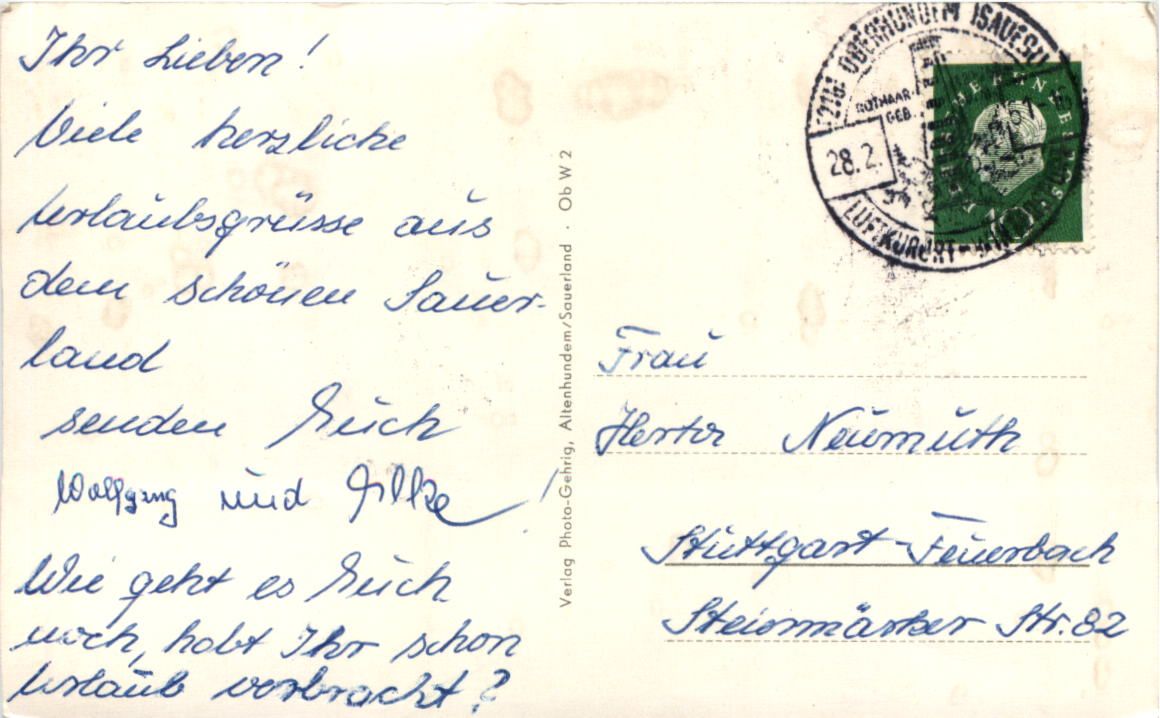 Ihr Lieben!
Viele herzliche
Urlaubsgrüsse aus
dem schönen Sauer-
land
senden Euch
Wolfgang und Silke!
Wie geht es Euch
noch, habt Ihr schon
Urlaub verbracht?
Verlag Photo-Gehrig, Altenhundem/Sauerland · Ob W 2
OBERHUNDEM (SAUERL)
ROTHAAR-
GEB.
28.2.
LUFTKURORT
10
Frau
Herta Neumuth
Stuttgart-Feuerbach
Steiermärker Str. 82